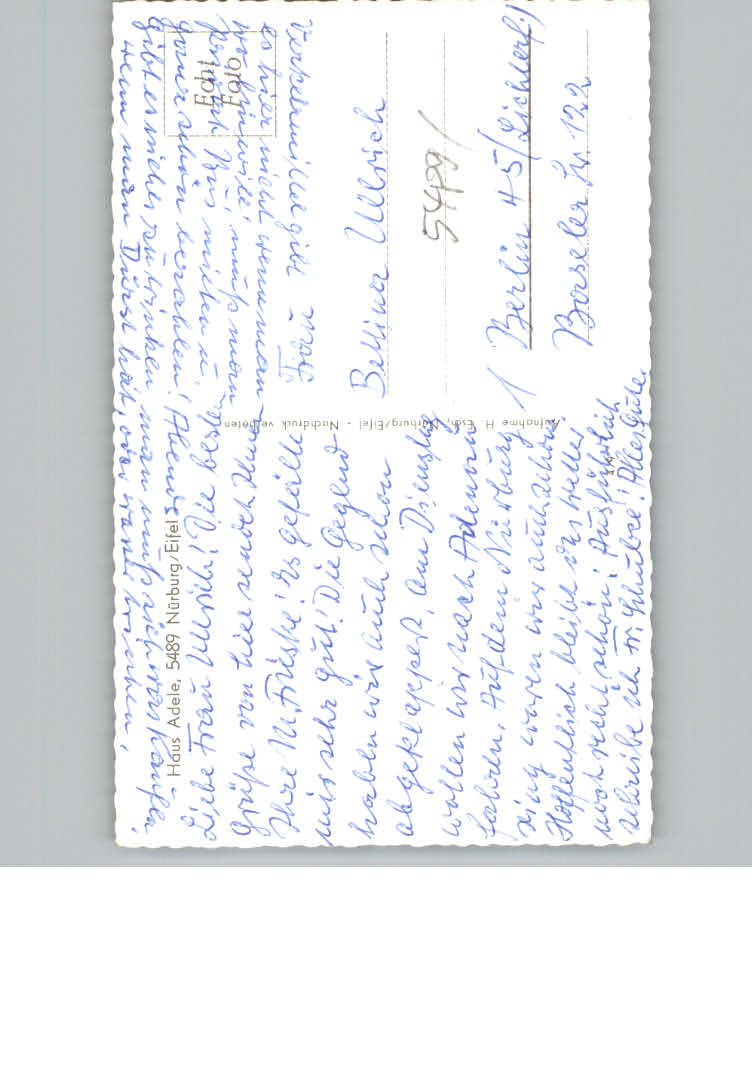 Haus Adele, 5489 Nürburg/Eifel
Liebe Frau Ullrich! Die besten
Grüße von hier sendet Ihnen
Ihre M. Friske! Es gefällt
mir sehr gut! Die Gegend
haben wir auch schon
abgeklappert, am Dienstag
wollen wir nach Adenau
fahren. Auf dem Nürburg
ring waren wir auch schon!
Hoffentlich bleibt das Wetter
noch recht schön! Ausführlich
schreibe ich Fr. Alles Gute.
Verkehrsmittel gibt
es hier nicht wenn man
wohin will, muß man
Bus mieten u.
ganz schön bezahlen! Abends
gibt es nichts zu trinken man muß sich was kaufen,
wenn man Durst hat, oder Wasser trinken.
Echt
Foto
Aufnahme H. Esch, Nürburg/Eifel - Nachdruck verboten
Frau
Bettina Ullrich
54pg/
1 Berlin 45/Lichterf./
Baseler Str. 122